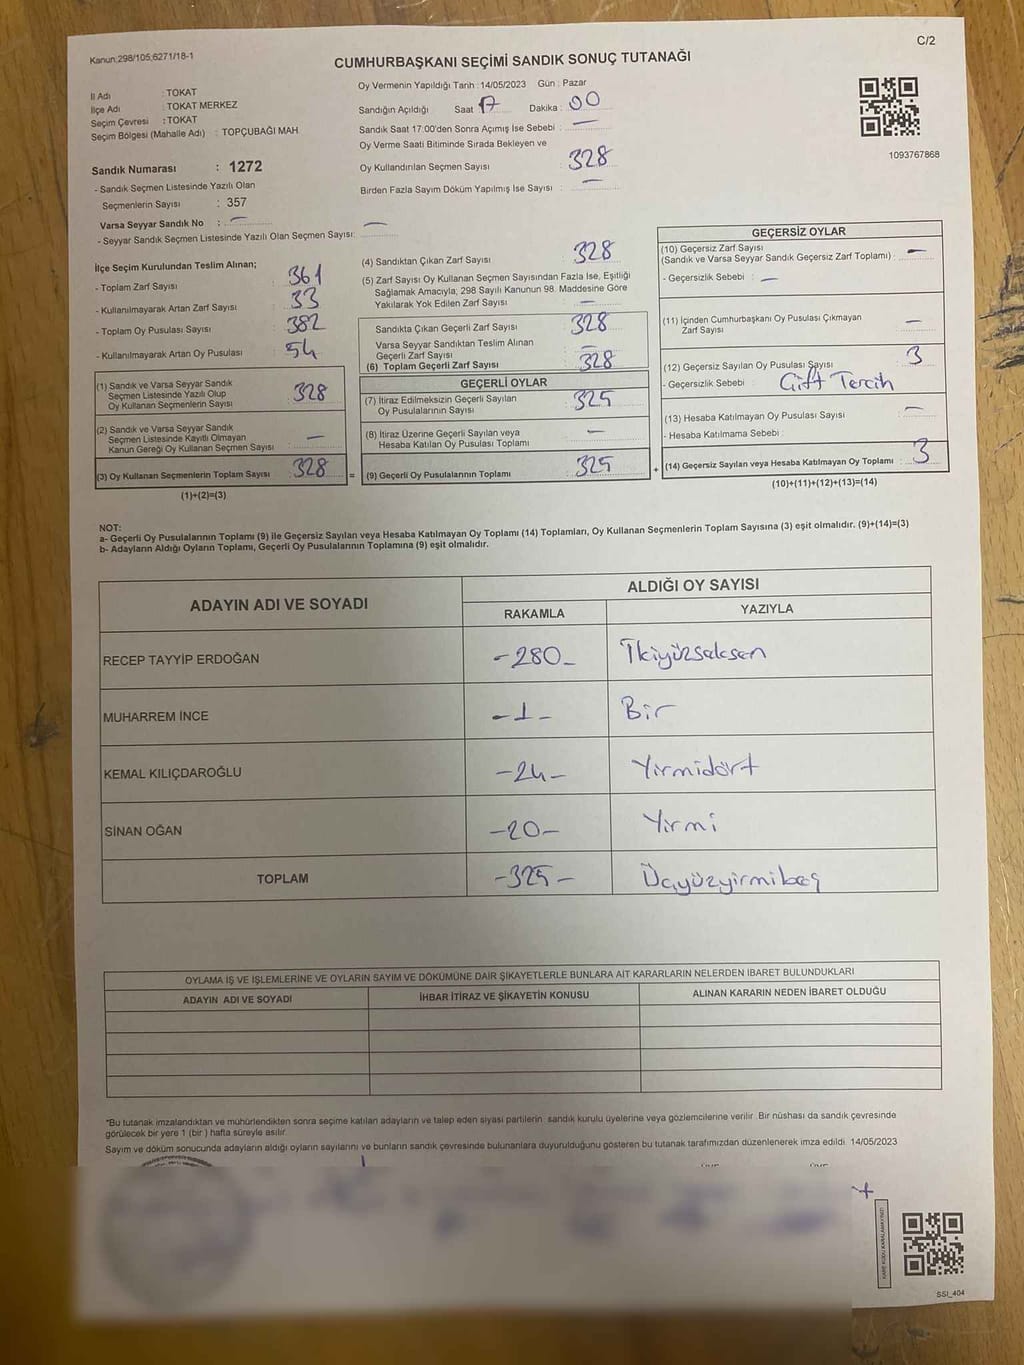 Kanun:298/105;6271/18-1
C/2
CUMHURBAŞKANI SEÇİMİ SANDIK SONUÇ TUTANAĞI
İl Adı : TOKAT
İlçe Adı : TOKAT MERKEZ
Seçim Çevresi : TOKAT
Seçim Bölgesi (Mahalle Adı) : TOPÇUBAĞI MAH
Sandık Numarası : 1272
- Sandık Seçmen Listesinde Yazılı Olan
Seçmenlerin Sayısı : 357
Varsa Seyyar Sandık No : —
- Seyyar Sandık Seçmen Listesinde Yazılı Olan Seçmen Sayısı: —
Oy Vermenin Yapıldığı Tarih : 14/05/2023 Gün : Pazar
Sandığın Açıldığı Saat 17 Dakika : 00
Sandık Saat 17.00'den Sonra Açılmış İse Sebebi : —
Oy Verme Saati Bitiminde Sırada Bekleyen ve
Oy Kullandırılan Seçmen Sayısı : 328
Birden Fazla Sayım Döküm Yapılmış İse Sayısı : —
1093767868
İlçe Seçim Kurulundan Teslim Alınan;
- Toplam Zarf Sayısı : 361
- Kullanılmayarak Artan Zarf Sayısı : 33
- Toplam Oy Pusulası Sayısı : 382
- Kullanılmayarak Artan Oy Pusulası : 54
(1) Sandık ve Varsa Seyyar Sandık
Seçmen Listesinde Yazılı Olup
Oy Kullanan Seçmenlerin Sayısı : 328
(2) Sandık ve Varsa Seyyar Sandık
Seçmen Listesinde Kayıtlı Olmayan
Kanun Gereği Oy Kullanan Seçmen Sayısı : —
(3) Oy Kullanan Seçmenlerin Toplam Sayısı : 328 =
(1)+(2)=(3)
(4) Sandıktan Çıkan Zarf Sayısı : 328
(5) Zarf Sayısı Oy Kullanan Seçmen Sayısından Fazla İse, Eşitliği
Sağlamak Amacıyla; 298 Sayılı Kanunun 98. Maddesine Göre
Yakılarak Yok Edilen Zarf Sayısı : —
Sandıkta Çıkan Geçerli Zarf Sayısı : 328
Varsa Seyyar Sandıktan Teslim Alınan
Geçerli Zarf Sayısı : —
(6) Toplam Geçerli Zarf Sayısı : 328
GEÇERLİ OYLAR
(7) İtiraz Edilmeksizin Geçerli Sayılan
Oy Pusulalarının Sayısı : 325
(8) İtiraz Üzerine Geçerli Sayılan veya
Hesaba Katılan Oy Pusulası Toplamı : —
(9) Geçerli Oy Pusulalarının Toplamı : 325 +
GEÇERSİZ OYLAR
(10) Geçersiz Zarf Sayısı
(Sandık ve Varsa Seyyar Sandık Geçersiz Zarf Toplamı) : —
- Geçersizlik Sebebi : —
(11) İçinden Cumhurbaşkanı Oy Pusulası Çıkmayan
Zarf Sayısı : —
(12) Geçersiz Sayılan Oy Pusulası Sayısı : 3
- Geçersizlik Sebebi : Çift Tercih
(13) Hesaba Katılmayan Oy Pusulası Sayısı : —
- Hesaba Katılmama Sebebi :
(14) Geçersiz Sayılan veya Hesaba Katılmayan Oy Toplamı : 3
(10)+(11)+(12)+(13)=(14)
NOT:
a- Geçerli Oy Pusulalarının Toplamı (9) ile Geçersiz Sayılan veya Hesaba Katılmayan Oy Toplamı (14) Toplamları, Oy Kullanan Seçmenlerin Toplam Sayısına (3) eşit olmalıdır. (9)+(14)=(3)
b- Adayların Aldığı Oyların Toplamı, Geçerli Oy Pusulalarının Toplamına (9) eşit olmalıdır.
ADAYIN ADI VE SOYADI
ALDIĞI OY SAYISI
RAKAMLA YAZIYLA
RECEP TAYYİP ERDOĞAN -280- İkiyüzseksen
MUHARREM İNCE -1- Bir
KEMAL KILIÇDAROĞLU -24- Yirmidört
SİNAN OĞAN -20- Yirmi
TOPLAM -325- Üçyüzyirmibeş
OYLAMA İŞ VE İŞLEMLERİNE VE OYLARIN SAYIM VE DÖKÜMÜNE DAİR ŞİKAYETLERLE BUNLARA AİT KARARLARIN NELERDEN İBARET BULUNDUKLARI
ADAYIN ADI VE SOYADI İHBAR İTİRAZ VE ŞİKAYETİN KONUSU ALINAN KARARIN NEDEN İBARET OLDUĞU
*Bu tutanak imzalandıktan ve mühürlendikten sonra seçime katılan adayların ve talep eden siyasi partilerin sandık kurulu üyelerine veya gözlemcilerine verilir. Bir nüshası da sandık çevresinde
görülecek bir yere 1 (bir) hafta süreyle asılır.
Sayım ve döküm sonucunda adayların aldığı oyların sayılarını ve bunların sandık çevresinde bulunanlara duyurulduğunu gösteren bu tutanak tarafımızdan düzenlenerek imza edildi. 14/05/2023
KARE KODU KARALAMAYINIZ!
SSI_404